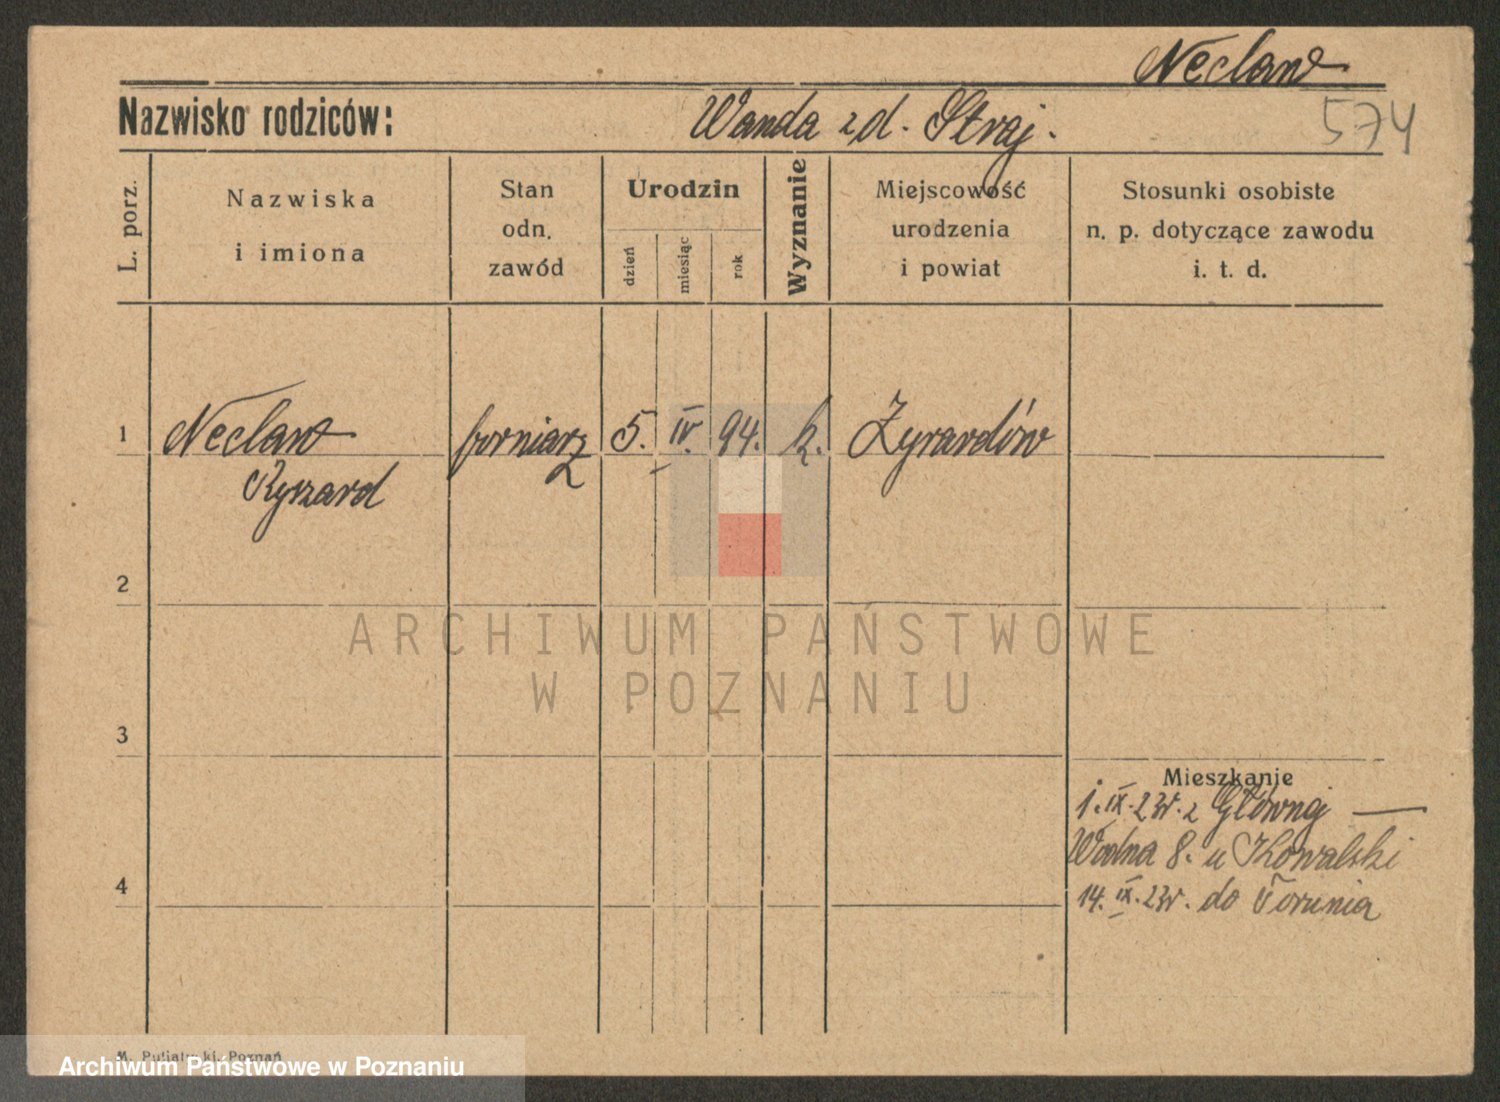 Necław
Nazwisko rodziców:
Wanda z d. Straj.
574
L. porz.
Nazwiska
i imiona
Stan
odn.
zawód
Urodzin
dzień
miesiąc
rok
Wyznanie
Miejscowość
urodzenia
i powiat
Stosunki osobiste
n. p. dotyczące zawodu
i. t. d.
1
Necław
Ryszard
forniarz
5. IV. 94.
k.
Żyrardów
2
ARCHIWUM PAŃSTWOWE
W POZNANIU
3
Mieszkanie
1. IX. 23r. z Główny —
Wodna 8. u Kowalski
4
14. IX. 23r. do Torunia
M. Putiatycki, Poznań
Archiwum Państwowe w Poznaniu